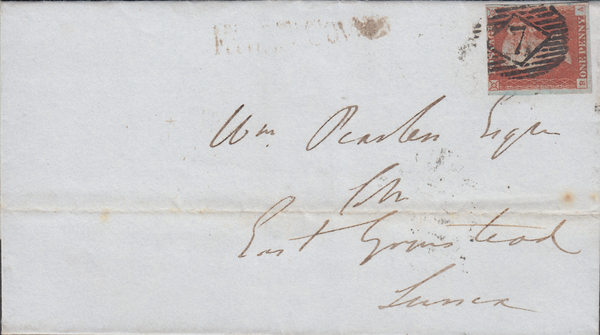 7
ONE PENNY
Wm Pearless Esqre
East Grinstead
Sussex